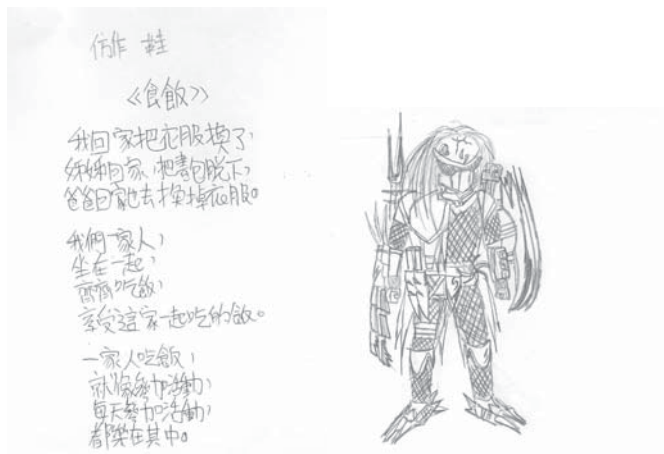 仿作 鞋
《食飯》
我回家把衣服換了，
姊姊回家，把書包脫下，
爸爸回家也去換掉衣服。
我們一家人，
坐在一起，
齊齊吃飯，
享受這家一起吃的飯。
一家人吃飯，
就像參加活動，
每天參加活動，
都樂在其中。